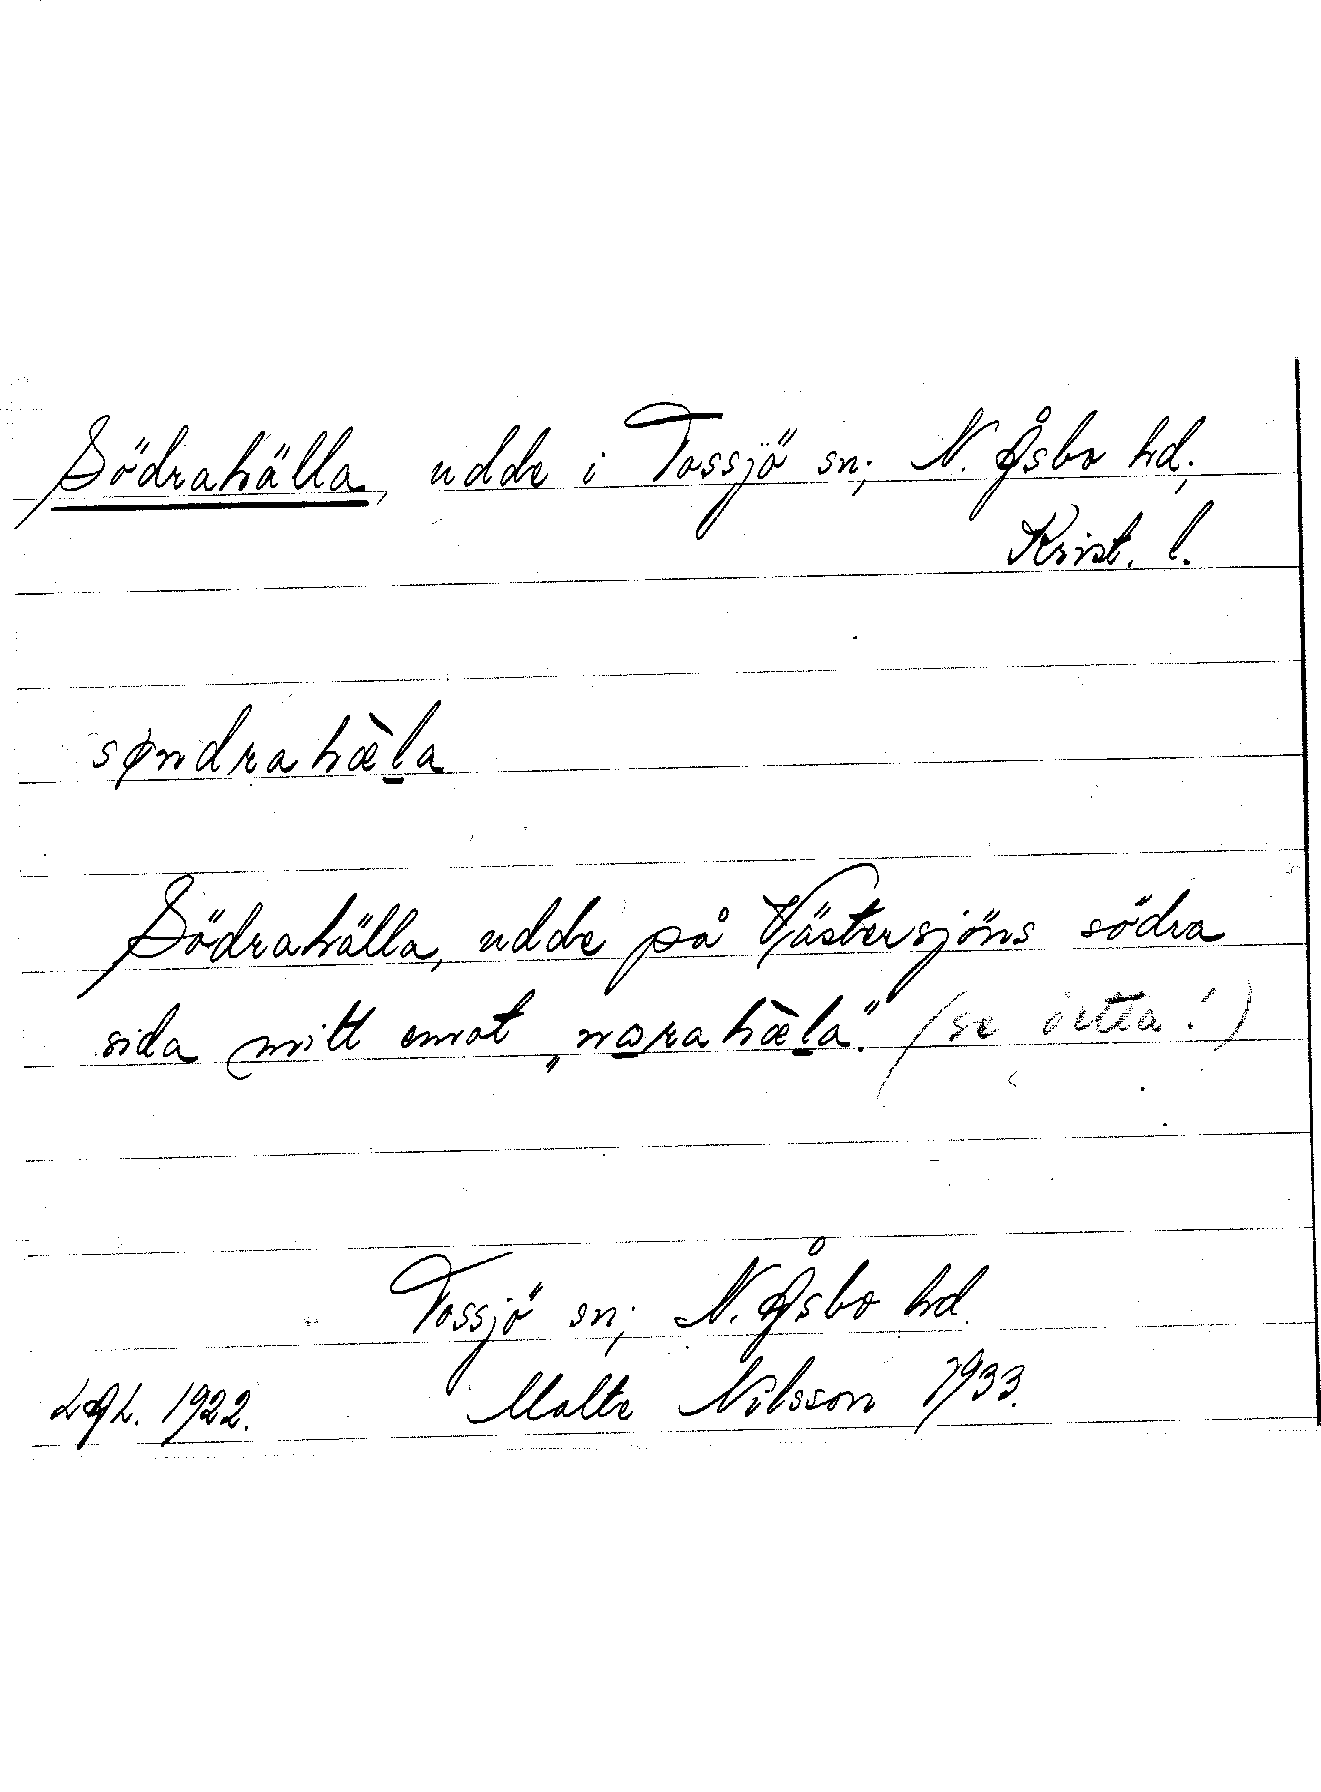 Södrahälla, udde i Tossjö sn; N. Åsbo hd;
Krist. l.
søndrahæ̀l̲a
Södrahälla, udde på Västersjöns södra
sida mitt emot „no̲rahæ̀l̲a." (se detta!)
Tossjö sn; N. Åsbo hd.
1922. Malte Nilsson 1933.